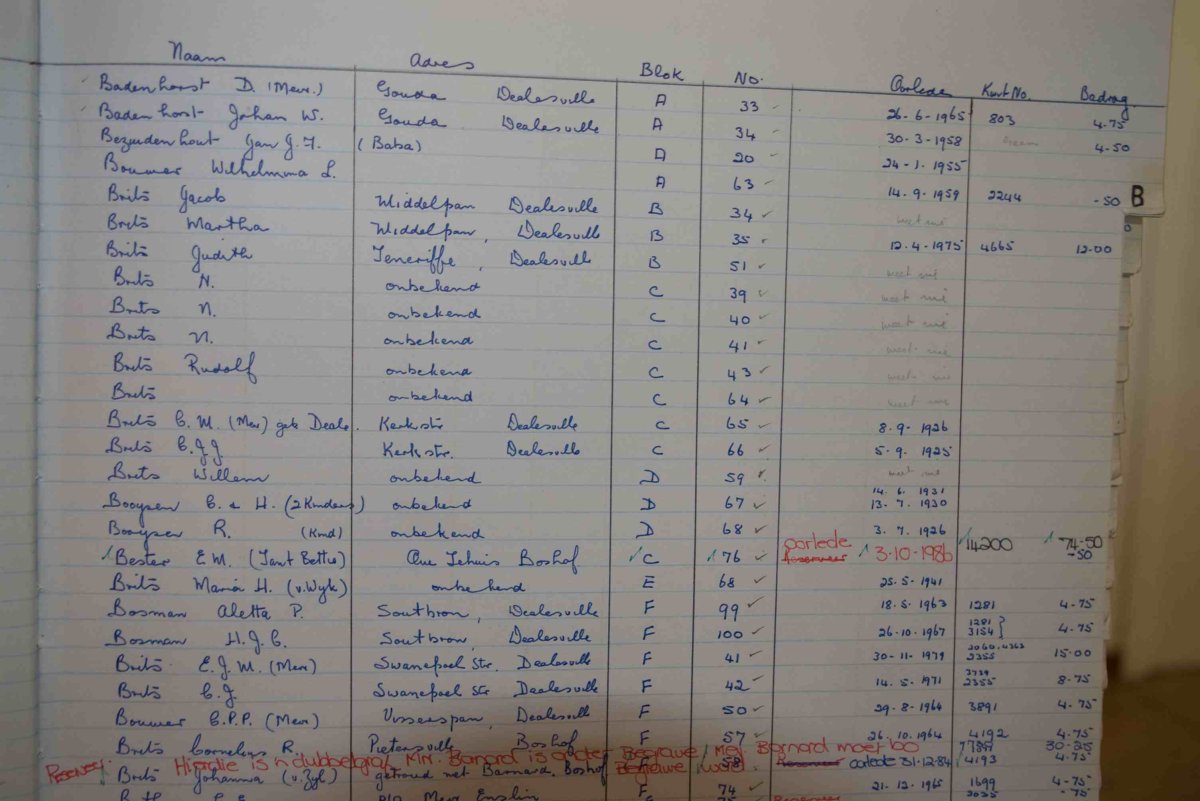 Naam Adres Blok No. Oorlede Kwit No. Bedrag
Badenhorst D. (Mev.) Gouda Dealesville A 33 26-6-1965 803 4-75
Badenhorst Johan W. Gouda Dealesville A 34 30-3-1958 4-50
Bezuidenhout Jan G.J. (Baba) A 20 24-1-1955
Bouwer Wilhelmina L. A 63 14.9.1959 2244 -50
Brits Jacob Middelpan Dealesville B 34 weet nie
Brits Martha Middelpan, Dealesville B 35 12.4-1975 4665 12-00
Brits Judith Teneriffe, Dealesville B 51 weet nie
Brits N. onbekend C 39 weet nie
Brits N. onbekend C 40 weet nie
Brits N. onbekend C 41 weet nie
Brits Rudolf onbekend C 43 weet nie
Brits onbekend C 64 weet nie
Brits C.M. (Mev) Deale. Kerkstr Dealesville C 65 8.9.1926
Brits C.J.J Kerkstr. Dealesville C 66 5.9.1925
Brits Willem onbekend D 59 weet nie
Booysen C. & H. (2 Kinders) onbekend D 67 14.6.1931
13.7.1930
Booysen R. (Kind) onbekend D 68 3.7.1926
Bester E.M. (Tant Bettie) Oue Tehuis Boshof C 76 oorlede 3-10-1986 14200 74-50
Reserveer -50
Brits Maria H. (v. Wyk) onbekend E 68 25.5-1941
Bosman Aletta P. Soutbron, Dealesville F 99 18.5.1963 1281 4-75
Bosman H.J.C. Soutbron, Dealesville F 100 26.10.1967 1281 3154 4-75
Brits E.J.M. (Mev) Swanepoel Str. Dealesville F 41 30-11-1979 2060.4363 2355 15.00
Brits C.J Swanepoel Str Dealesville F 42 14.5.1971 3739 2355 8-75
Bouwer C.P.P. (Mev) Visserspan, Dealesville F 50 29.8.1964 3891 4-75
Brits Cornelius R. Pietersville Boshof F 57 26.10.1964 4192 4-75
Reserveer: Hierdie is 'n dubbelgraf, Mnr. Barnard is onder Begrawe, Mev. Barnard moet bo 30-25
Begrawe word. 58 Reserveer oorlede 31.12.84 4193 4-75
Brits Johanna (v. Zyl) getroud met Barnard, Boshof F 74 21.12.1965 1699 4-75
P/A Mev. Enslin 3035 -75
B